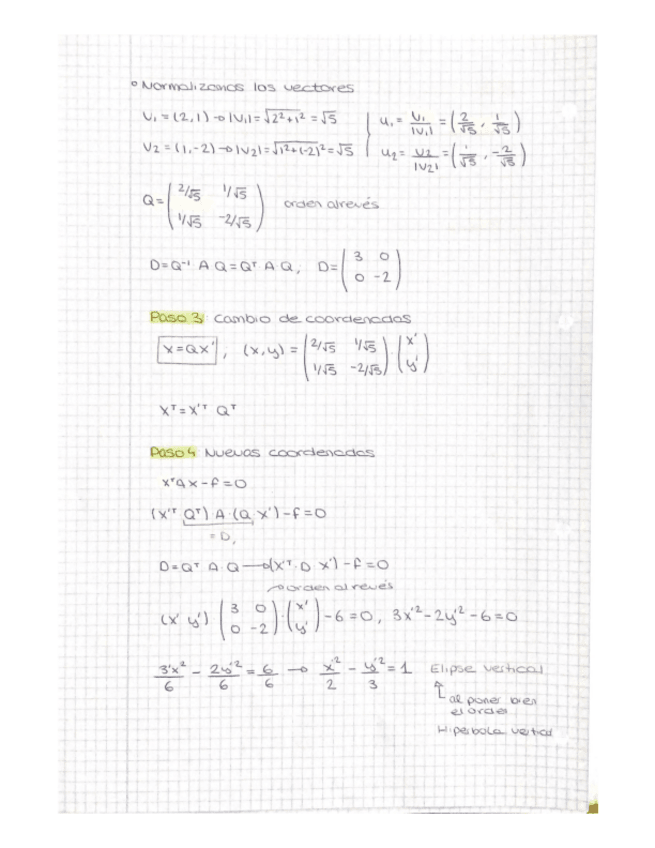 ° Normalizamos los vectores
V₁ = (2,1) → |V₁| = √2²+1² = √5 } u₁ = V₁/|V₁| = (2/√5, 1/√5)
V₂ = (1,-2) → |V₂| = √1²+(-2)² = √5 | u₂ = V₂/|V₂| = (1/√5, -2/√5)
Q = (2/√5 1/√5
1/√5 -2/√5) orden al revés
D = Q⁻¹ A Q = Qᵀ A Q, D = (3 0
0 -2)
Paso 3: Cambio de coordenadas
X = QX', (x,y) = (2/√5 1/√5
1/√5 -2/√5) · (x'
y')
Xᵀ = X'ᵀ Qᵀ
Paso 4 Nuevas coordenadas
XᵀAX - f = 0
(X'ᵀ Qᵀ) A · (Q X') - f = 0
= D,
D = Qᵀ A · Q → (X'ᵀ · D X') - f = 0
→ orden al revés
(x' y') (3 0
0 -2) · (x'
y') - 6 = 0, 3x'² - 2y'² - 6 = 0
3'x²/6 - 2y'²/6 = 6/6 → x'²/2 - y'²/3 = 1 Elipse vertical
↑ al poner bien
el orden
Hiperbola vertical